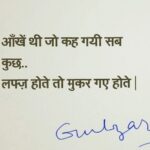 आँखें थी जो कह गयी सब
कुछ..
लफ्ज़ होते तो मुकर गए होते |
Gulzar